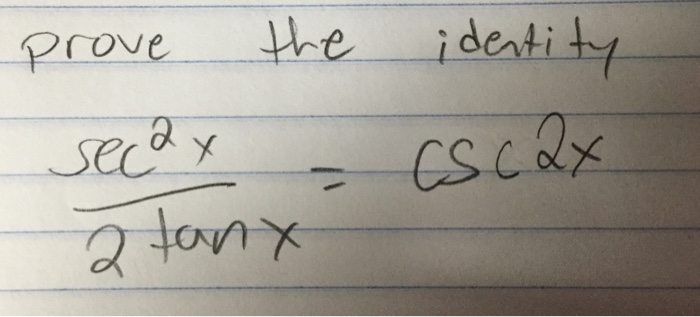 prove the identity
sec²x / 2 tanx = csc2x